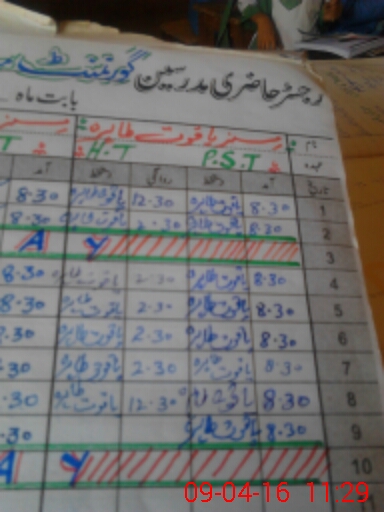 رجسٹر حاضری مدرسین گورنمنٹ
بابت ماہ
نام مسز یاقوت طاہرہ مسز
عہدہ P.S.T H.T T
تاریخ آمد دستخط روانگی دستخط آمد
1 8.30 یاقوت طاہرہ 12.30 یاقوت طاہرہ 8.30
2 8.30 یاقوت طاہرہ 2.30 یاقوت طاہرہ 8.30
3 Y A
4 8.30 یاقوت طاہرہ 2.30 یاقوت طاہرہ 8.30
5 8.30 یاقوت طاہرہ 2.30 یاقوت طاہرہ 8.30
6 8.30 یاقوت طاہرہ 2.30 یاقوت طاہرہ .30
7 8.30 یاقوت طاہرہ 2.30 یاقوت طاہرہ .30
8 8.30 یاقوت طاہرہ 12.30 یاقوت طاہرہ .30
9 8.30 یاقوت طاہرہ .30
10 Y A
09-04-16 11:29